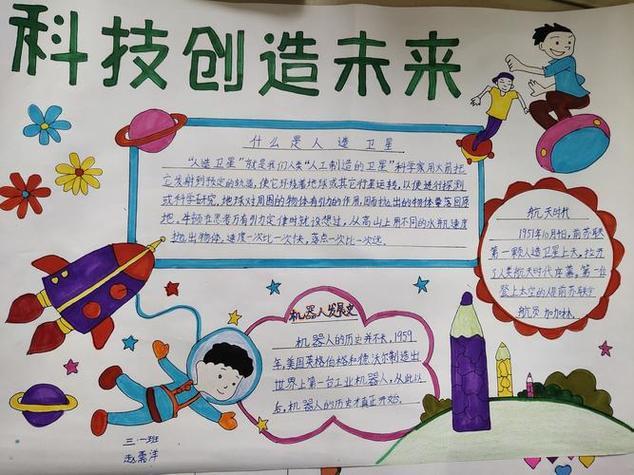 科技创造未来
什么是人造卫星
“人造卫星”就是我们人类“人工制造的卫星”科学家用火箭把
它发射到预定的轨道，使它环绕着地球或其它行星运转，以便进行探测
或科学研究，地球对周围的物体有引力的作用，因而抛出的物体要落回原
地，牛顿在思考万有引力定律时就设想过，从高山上用不同的水平速度
抛出物体，速度一次比一次快，落点一次比一次远
航天时代
1951年10月4日，前苏联
第一颗人造卫星上天，拉开
了人类航天时代序幕，第一位
登上太空的人是前苏联宇
航员加加林。
机器人发展史
机器人的历史并不长，1959
年，美国英格伯格和德沃尔制造出
世界上第一台工业机器人，从此以
后，机器人的历史才真正开始。
三.一班
赵洋